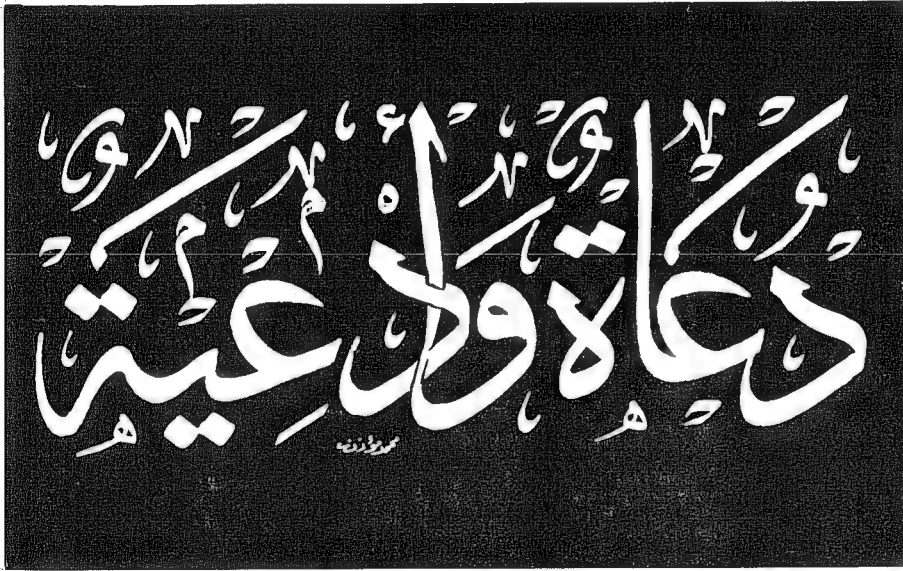 دُعَاة وَأدْعِيَة